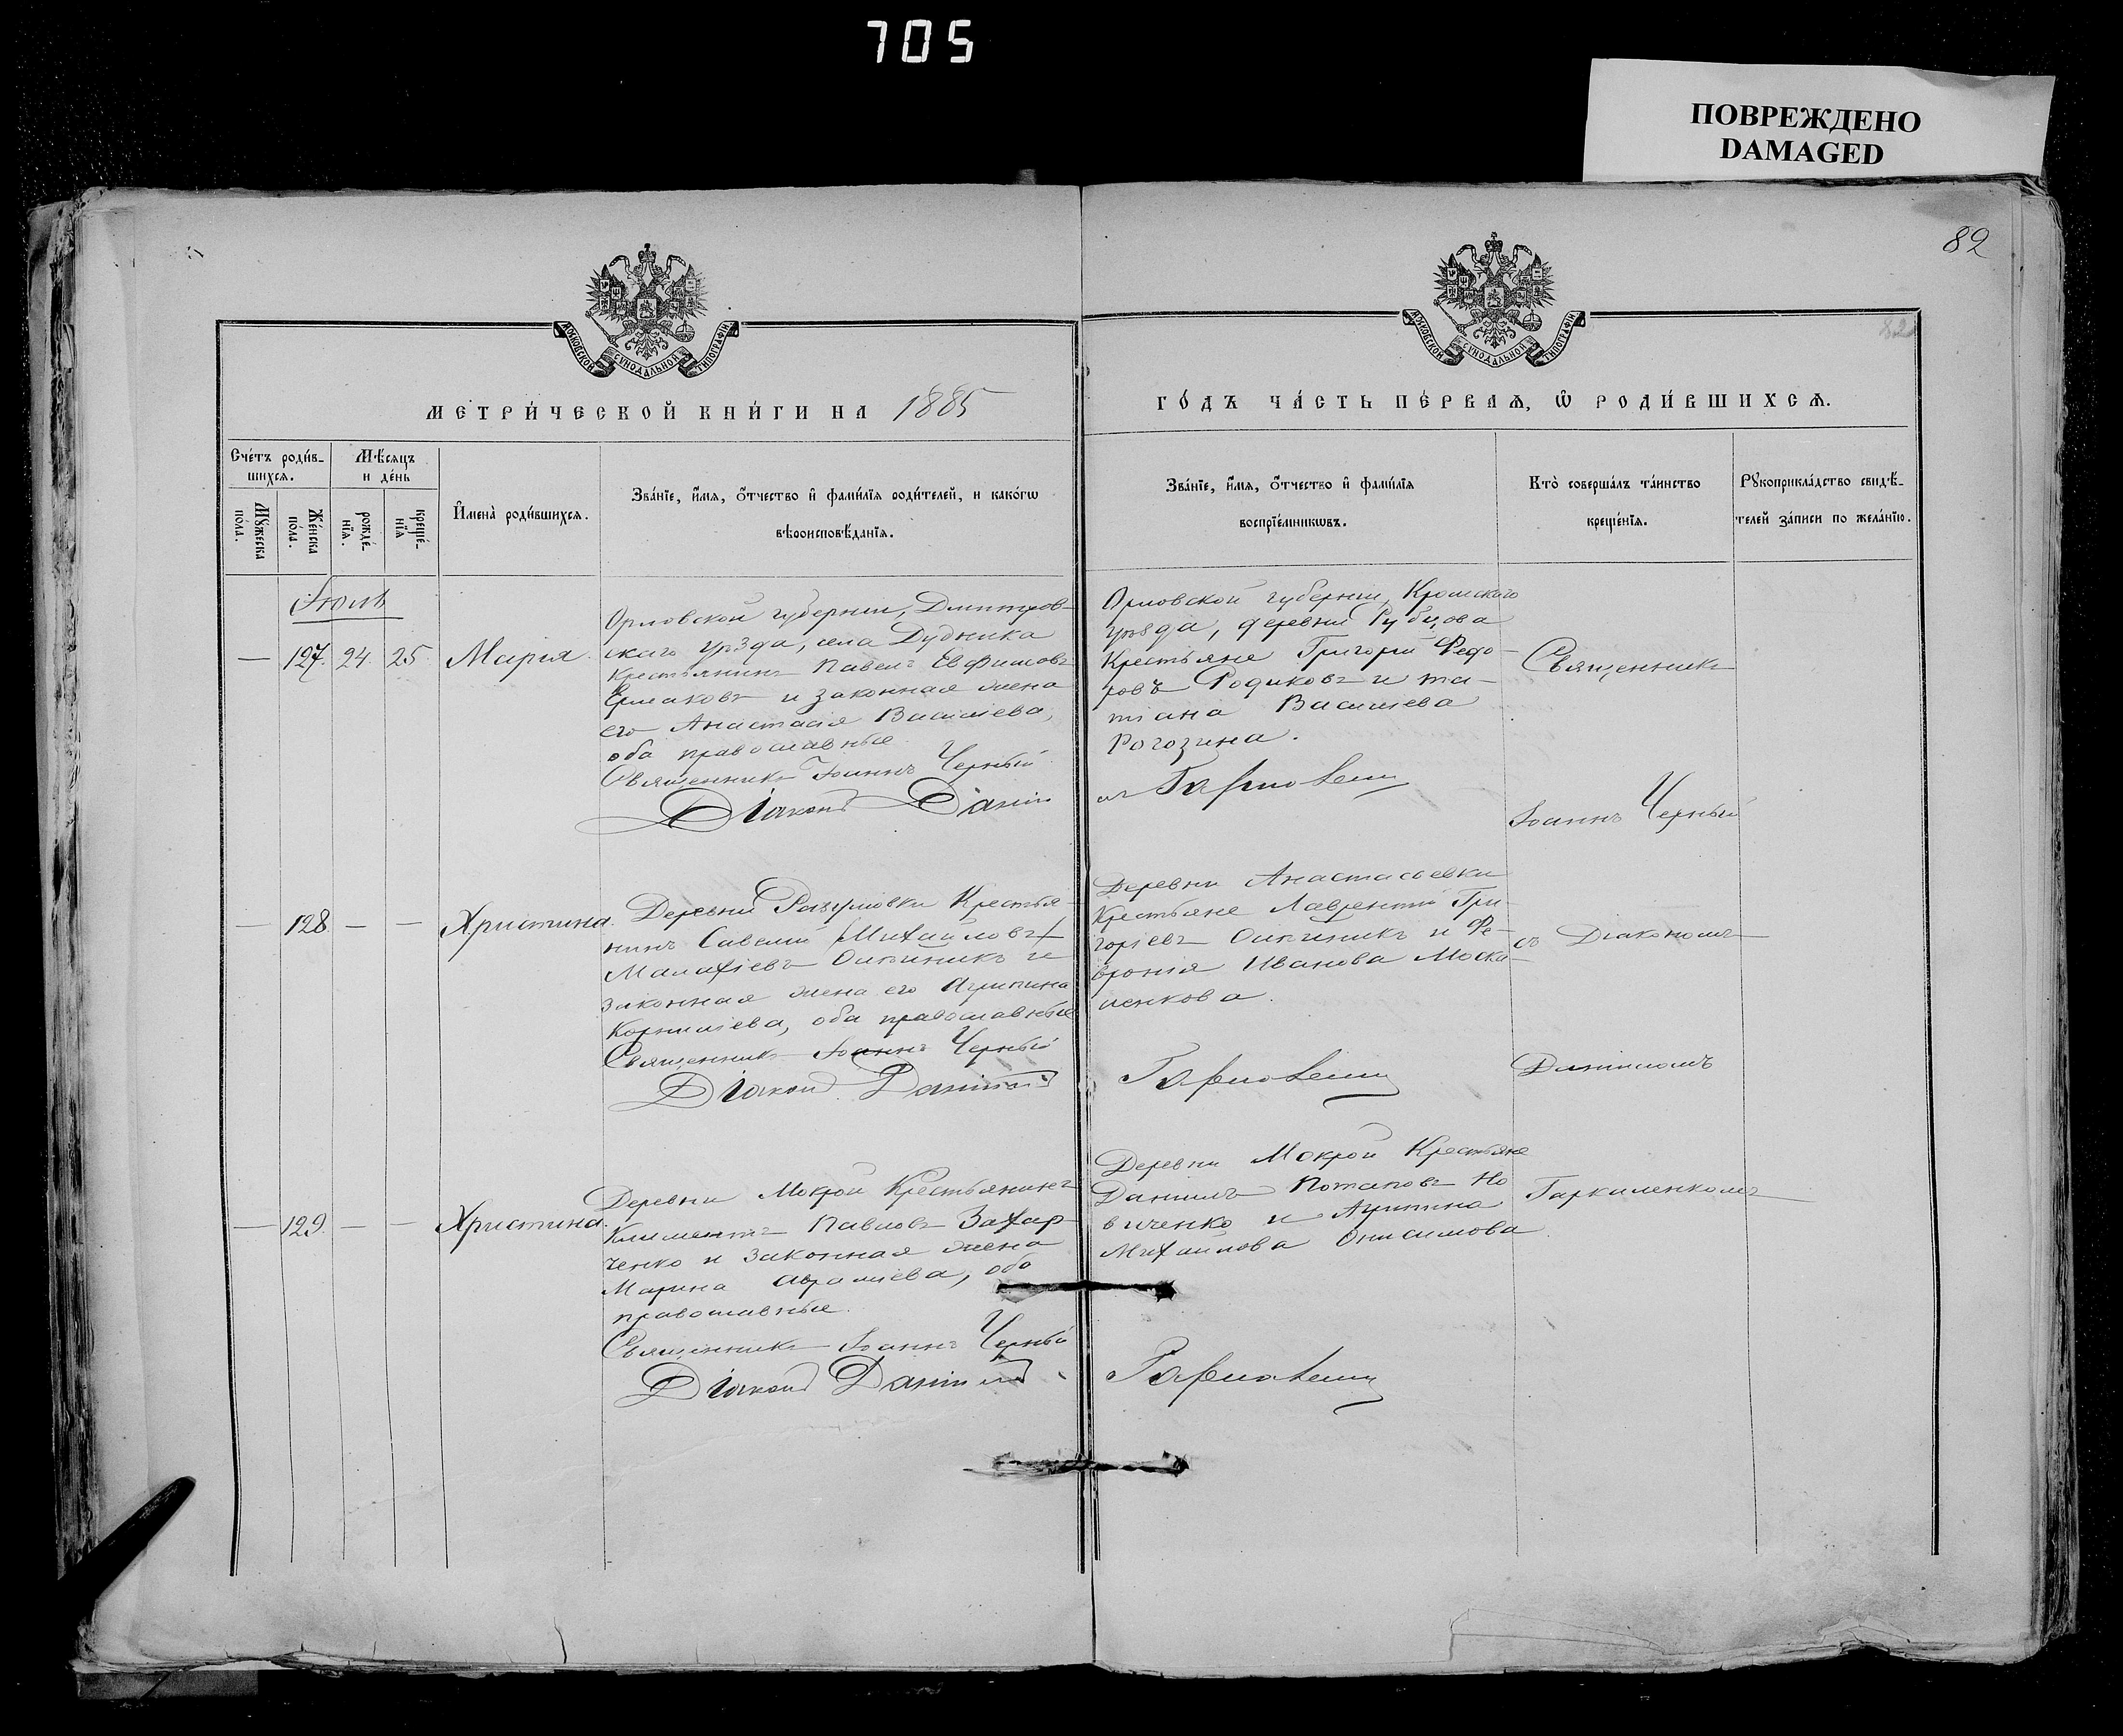 705
ПОВРЕЖДЕНО
DAMAGED
82
82
МОСКОВСКОЙ СУНОДАЛЬНОЙ ТИПОГРАФІИ
МОСКОВСКОЙ СУНОДАЛЬНОЙ ТИПОГРАФІИ
МЕТРИ́ЧЕСКОЙ КНИ́ГИ НА 1885
ГО́ДЪ ЧА́СТЬ ПЕ́РВАѦ, Ѡ РОДИ́ВШИХСѦ.
Сче́тъ роди́в-
шихсѧ.
Мѣ́сяцъ
и де́нь
Му́жеска
по́ла.
Же́нска
по́ла.
рожде́-
нїѧ.
креще́-
нїѧ
И҆мена̀ роди́вшихсѧ.
Зва́нїе, и҆́мѧ, ѻ҆́тчество и҆ фами́лїѧ роди́телей, и како́гѡ
вѣроисповѣ́данїѧ.
Зва́нїе, и҆́мѧ, ѻ҆́тчество и҆ фами́лїѧ
воспрїе́мникѡвъ.
Кто̀ соверша́лъ та́инство
креще́нїѧ.
Рукоприкла́дство свидѣ́-
телей за́писи по жела́нїю.
Іюль
— 127. 24. 25. Марія.
Орловской губерніи, Дмитров-
скаго уѣзда, села Дубника
крестьянинъ Павелъ Евфимовъ
Ермаковъ и законная жена
его Анастасія Васильева,
оба православные
Священникъ Іоаннъ Черный
Діаконъ Даніи
Орловской губерніи, Кромскаго
уѣзда, деревни Рубцова
Крестьяне Григорій Федо-
ровъ Родиковъ и та-
тіана Васильева
Рогозина.
лъ
Священникъ
Іоаннъ Черный
— 128. — — Христина.
Деревни Разумовки Крестья-
нинъ Савелій Михайловъ
Малахіевъ и
законная жена его Агрипина
Корниліева, оба православные
Священникъ Іоаннъ Черный
Діаконъ Даніилъ
Деревни Анастасьевки
Крестьяне Лаврентій Гри-
горіевъ и Фе-
вронія Иванова Моска-
ленкова.
съ Діакономъ
Даніиломъ
— 129. — — Христина.
Деревни Мокрой Крестьянинъ
Климентъ Павловъ Захар-
ченко и законная жена
Марина Авраміева, оба
православные.
Священникъ Іоаннъ Черный
Діаконъ Даніилъ
Деревни Мокрой Крестьяне
Даніилъ Потаповъ Но
виченко и Агрипина
Михайлова Онисимова.
Гаркаленкомъ